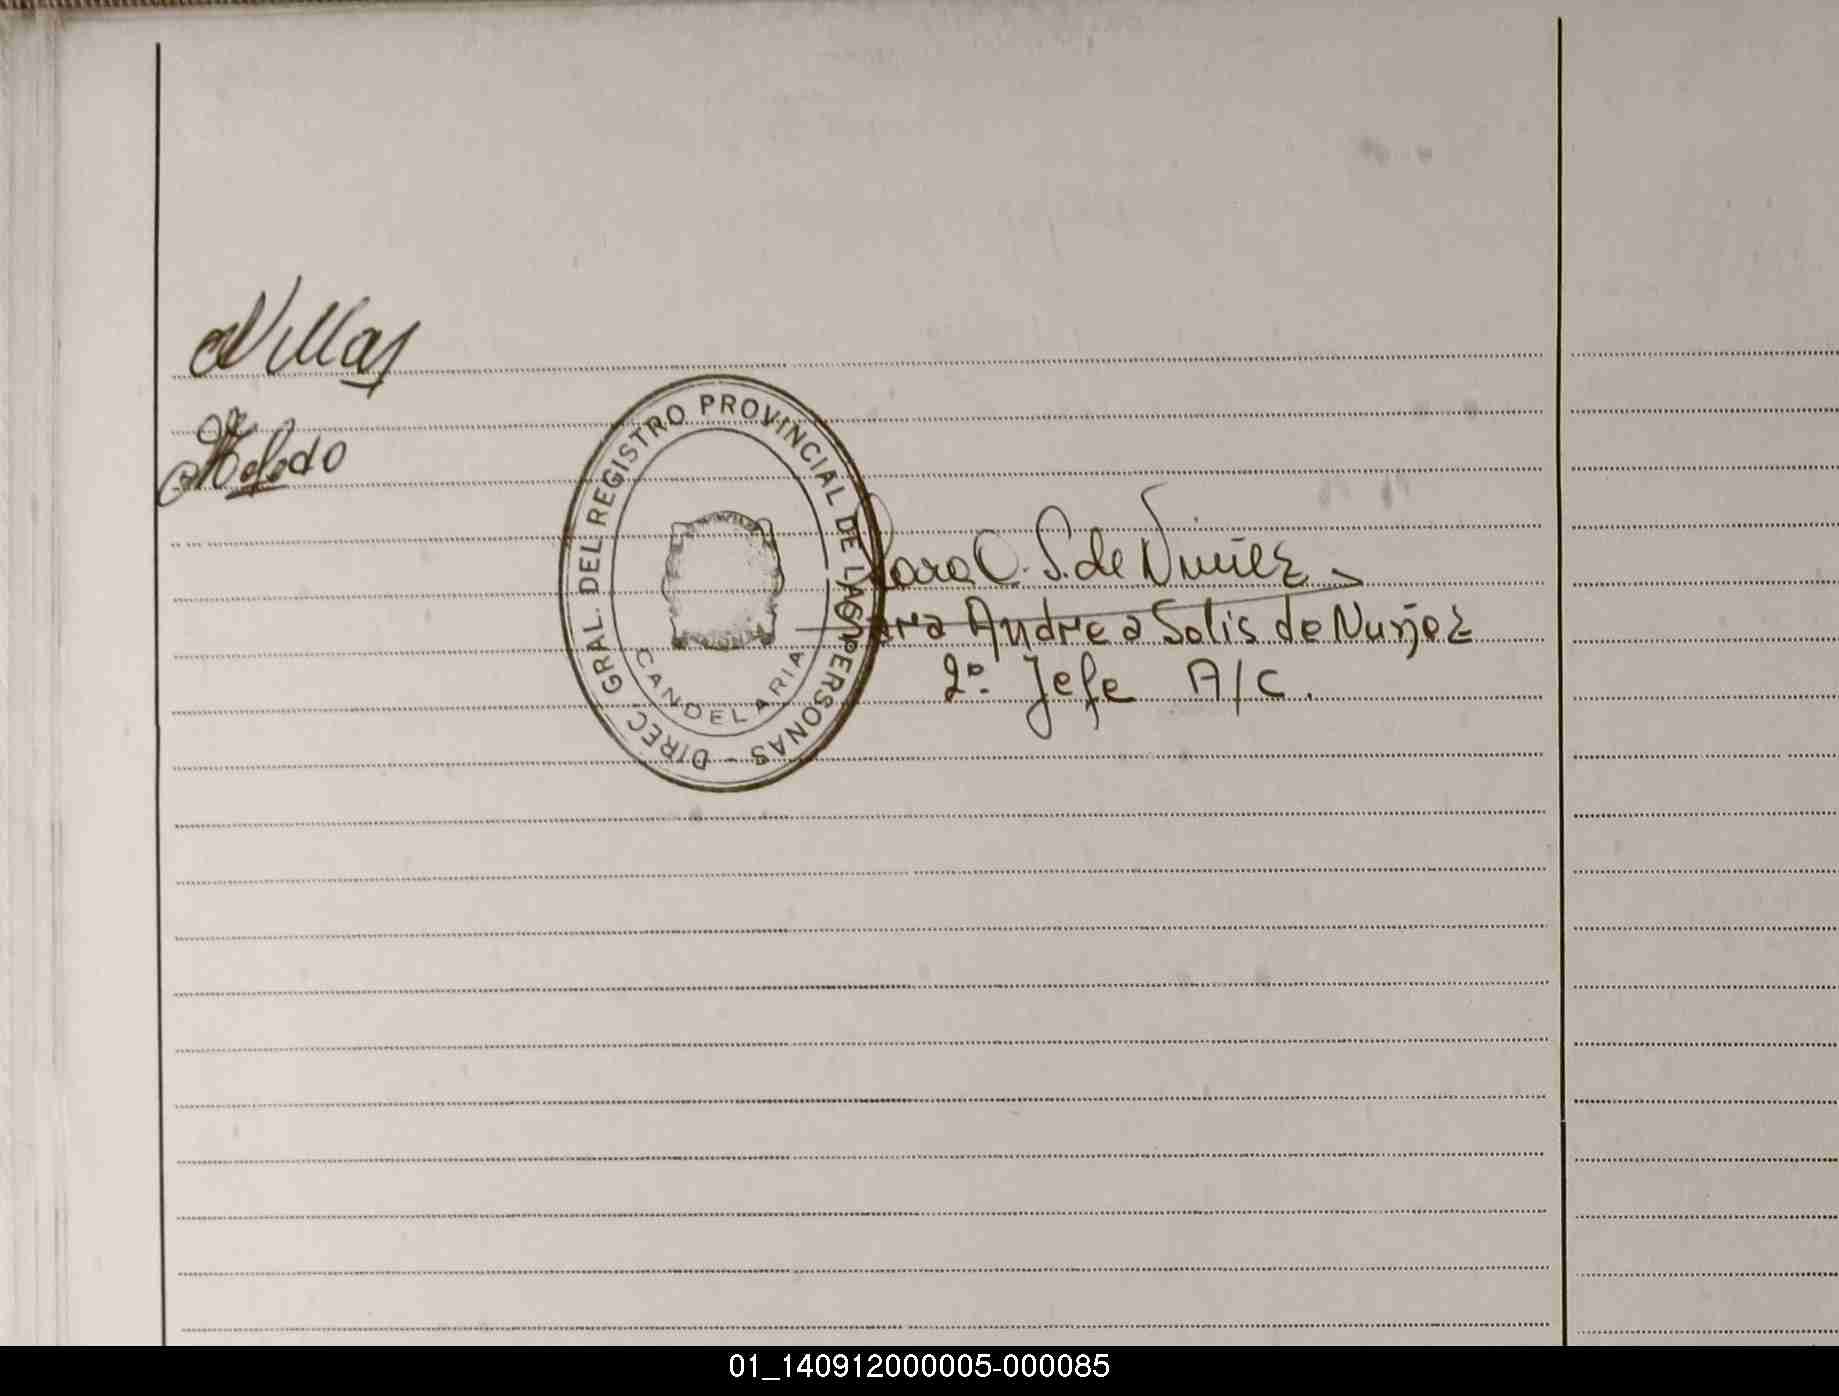 Villas
Toledo
DIREC. GRAL. DEL REGISTRO PROVINCIAL DE LAS PERSONAS -
CANDELARIA
S. de Nuñez
Andrea Solis de Nuñez
2º. Jefe A/C.
01_140912000005-000085